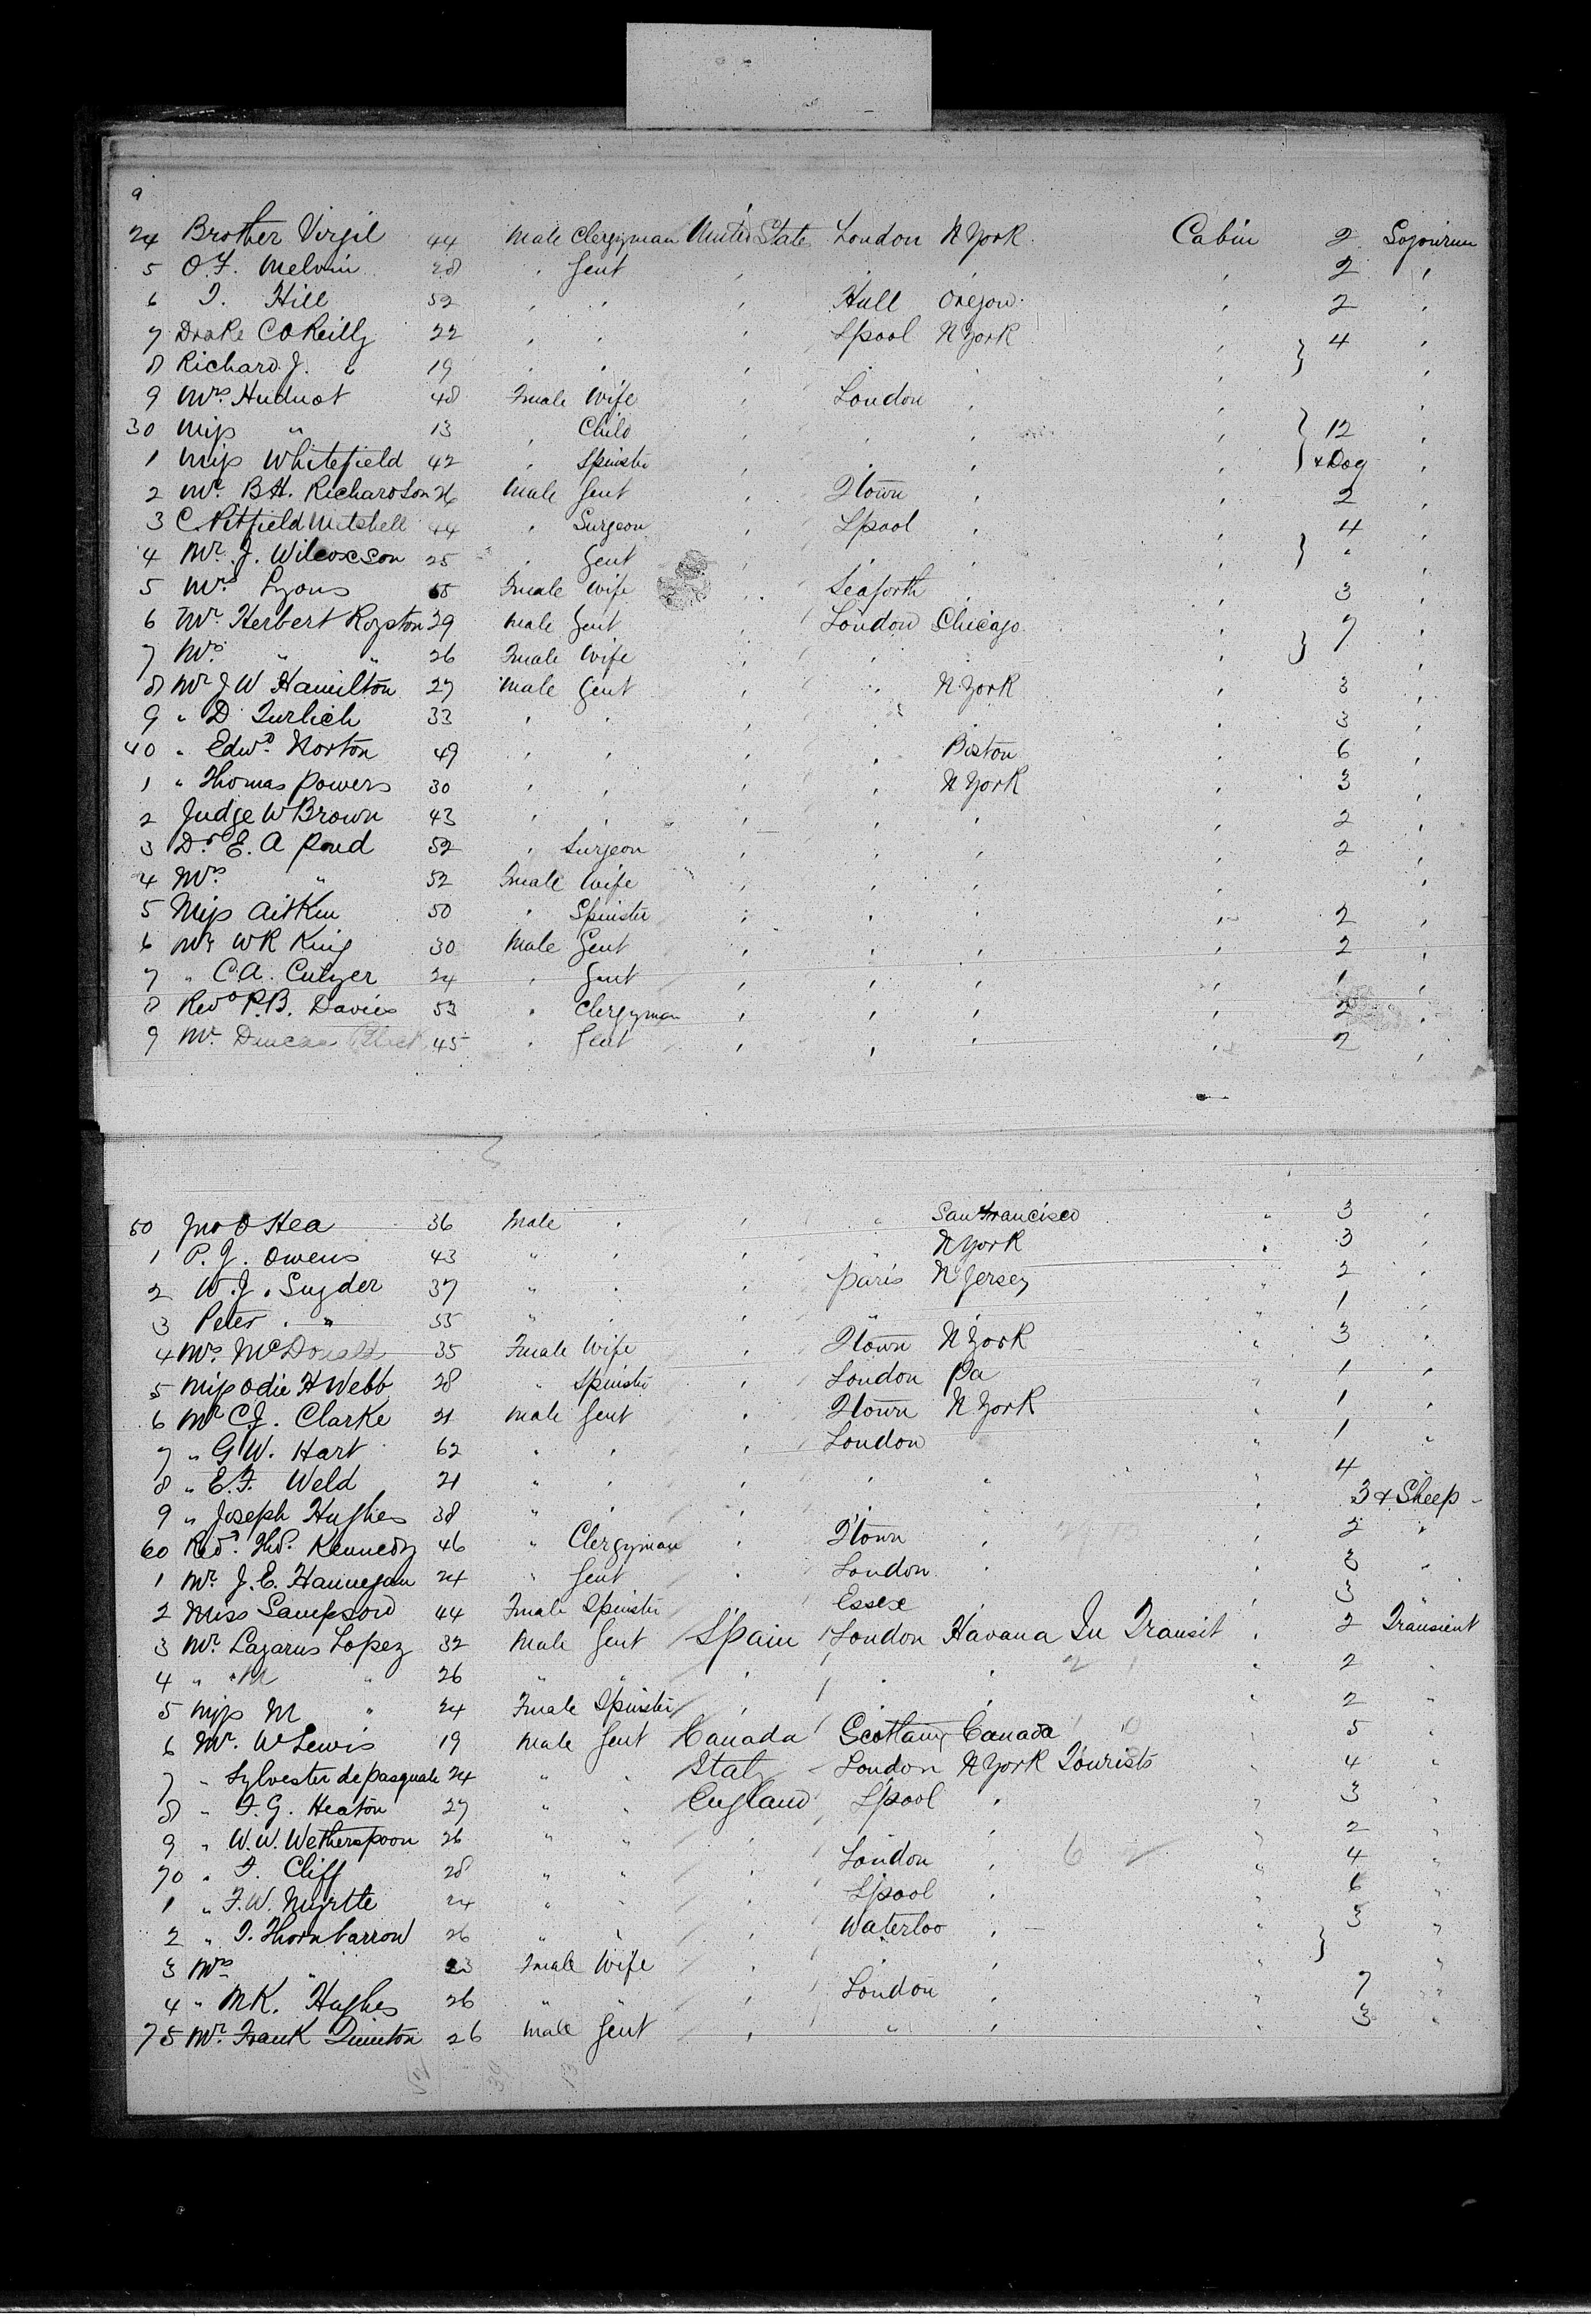 9
24 Brother Virgil 44 Male Clergyman United State London N York Cabin 2 Sojourner
5 O.F. Melvin 28 , Gent , , , , 2 ,
6 T. Hill 52 , , , Hull Oregon , 2 ,
7 Drake C O Reilly 22 , , , Lpool N York , } 4 ,
8 Richard J. " 19 , , , , , , ,
9 Mrs. Hudnot 48 Fmale Wife , London , , ,
30 Miss " 13 , Child , , , , } 12 ,
1 Miss Whitefield 42 , Spinster , , , , + Dog ,
2 Mr. B.H. Richardson 26 Male Gent , Qtown , , 2 ,
3 C. Pitfield Mitchell 44 , Surgeon , Lpool , , 4 ,
4 Mr. J. Wilcoxson 25 , Gent , , , , } " ,
5 Mrs Lyons 55 Fmale Wife , Seaforth , , 3 ,
6 Mr. Herbert Royston 29 Male Gent , London Chicago , 7 ,
7 Mrs. " " 26 Fmale Wife , , , , } ,
8 Mr J W Hamilton 27 Male Gent , " N. York , 3 ,
9 " D. 33 , , , " , , 3 ,
40 " Edwd. Norton 49 , , , , Boston , 6 ,
1 " Thomas Powers 30 , , , , N York , 3 ,
2 Judge W Brown 43 , , , , , , 2 ,
3 Dr. E. A Pond 52 , Surgeon , , , , 2 ,
4 Mrs. " 52 Fmale Wife , , , , ,
5 Miss Aitkin 50 , Spinster , , , , 2 ,
6 Mr W R King 30 Male Gent , , , , 2 ,
7 " C.A. 24 , Gent , , , , 1 ,
8 Revd P.B. Davies 53 , Clergyman , , , , 2 ,
9 Mr. Duncan Black 45 , Gent , , , , 2 ,
50 Jno O Hea 36 Male , , " San Francisco " 3 ,
1 P. J. Owens 43 " , , " N York , 3 ,
2 W. J. Snyder 37 " , , Paris N Jersey " 2 ,
3 Peter " 55 " , , " , " 1 ,
4 Mrs. McDonald 35 Fmale Wife , Qtown N York " 3 ,
5 Miss Odie H Webb 28 " Spinster , London Pa " 1 ,
6 Mr C.J. Clarke 21 Male Gent , Qtown N York " 1 ,
7 " G W. Hart 62 " , , London " 1 "
8 " E.F. Weld 21 " , , , " " 4 "
9 " Joseph Hughes 38 " , , , " , 3 & Sheep "
60 Revd. Thos. Kennedy 46 " Clergyman , Qtown , , 2 "
1 Mr. J.E. Hannegan 24 " Gent , London , , 3 "
2 Miss Sampson 44 Fmale Spinster , Essex , , 3
3 Mr. Lazarus Lopez 32 Male Gent Spain London Havana In Transit , 2 Transient
4 " M " 26 " " , , , " 2 "
5 Miss M " 24 Fmale Spinster , , , " 2 "
6 Mr. W Lewis 19 Male Gent Canada Scotland Canada " 5 "
7 " Sylvester de Pasquale 24 " " Italy London N York Tourists " 4 "
8 " F. G. Heaton 27 " " England Lpool , " 3 "
9 " W.W. Wetherspoon 26 " " , , , " 2 "
70 " F. Cliff 28 " " , London , " 4 "
1 " F.W. 24 " " , Lpool , " 6 "
2 " 26 " " , Waterloo , " 3 "
3 Mrs " 23 Fmale Wife , , , " } "
4 " M K. Hughes 26 " " , London , " 7 "
75 Mr. Frank 26 Male Gent , " , " 3 "